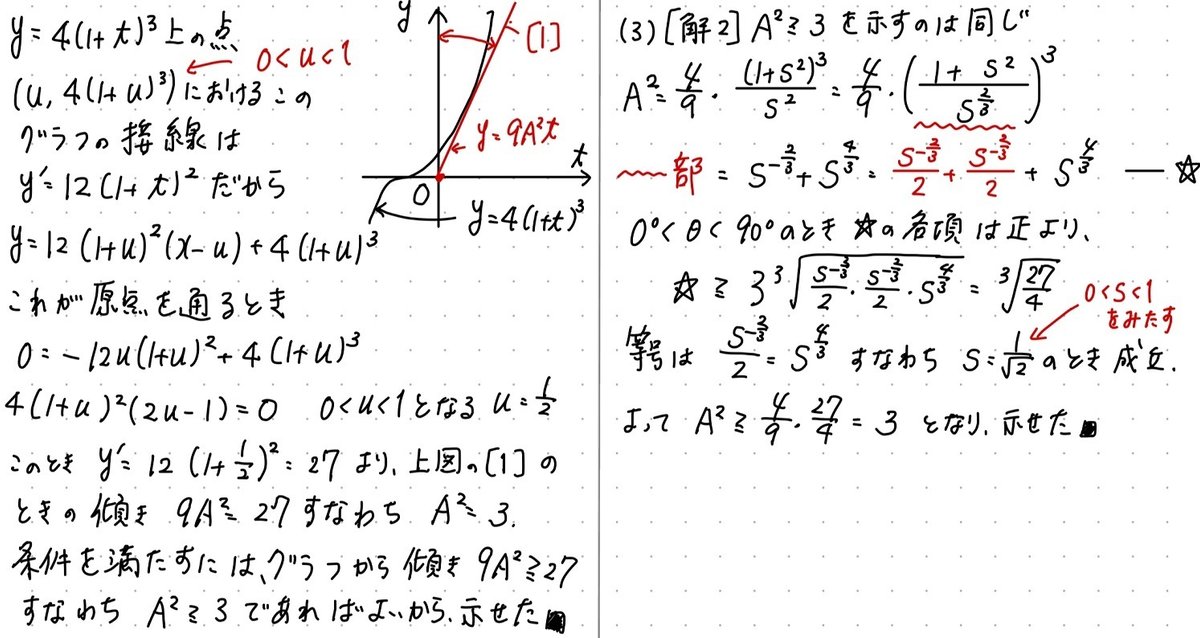 y=4(1+t)³上の点
0<u<1
(u, 4(1+u)³)におけるこの
グラフの接線は
y'=12(1+t)²だから
y=12(1+u)²(x-u)+4(1+u)³
これが原点を通るとき
0=-12u(1+u)²+4(1+u)³
4(1+u)²(2u-1)=0 0<u<1となるu=1/2
このとき y'=12(1+1/2)²=27より、上図の[1]の
ときの傾き 9A²=27すなわち A²=3.
条件を満たすには、グラフから傾き9A²≧27
すなわち A²≧3であればよいから、示せた■
y
[1]
y=9A²t
t
O
y=4(1+t)³
(3)[解2]A²≧3を示すのは同じ
A²=4/9・(1+S²)³/S²=4/9・((1+S²)/S^(2/3))³
〰部=S^(-2/3)+S^(4/3)=S^(-2/3)/2+S^(-2/3)/2+S^(4/3) ―☆
0°<θ<90°のとき☆の各項は正より、
☆≧3∛(S^(-2/3)/2・S^(-2/3)/2・S^(4/3))=∛(27/4)
0<S<1
をみたす
等号は S^(-2/3)/2=S^(4/3) すなわち S=1/√2のとき成立.
よって A²≧4/9・27/4=3 となり、示せた■